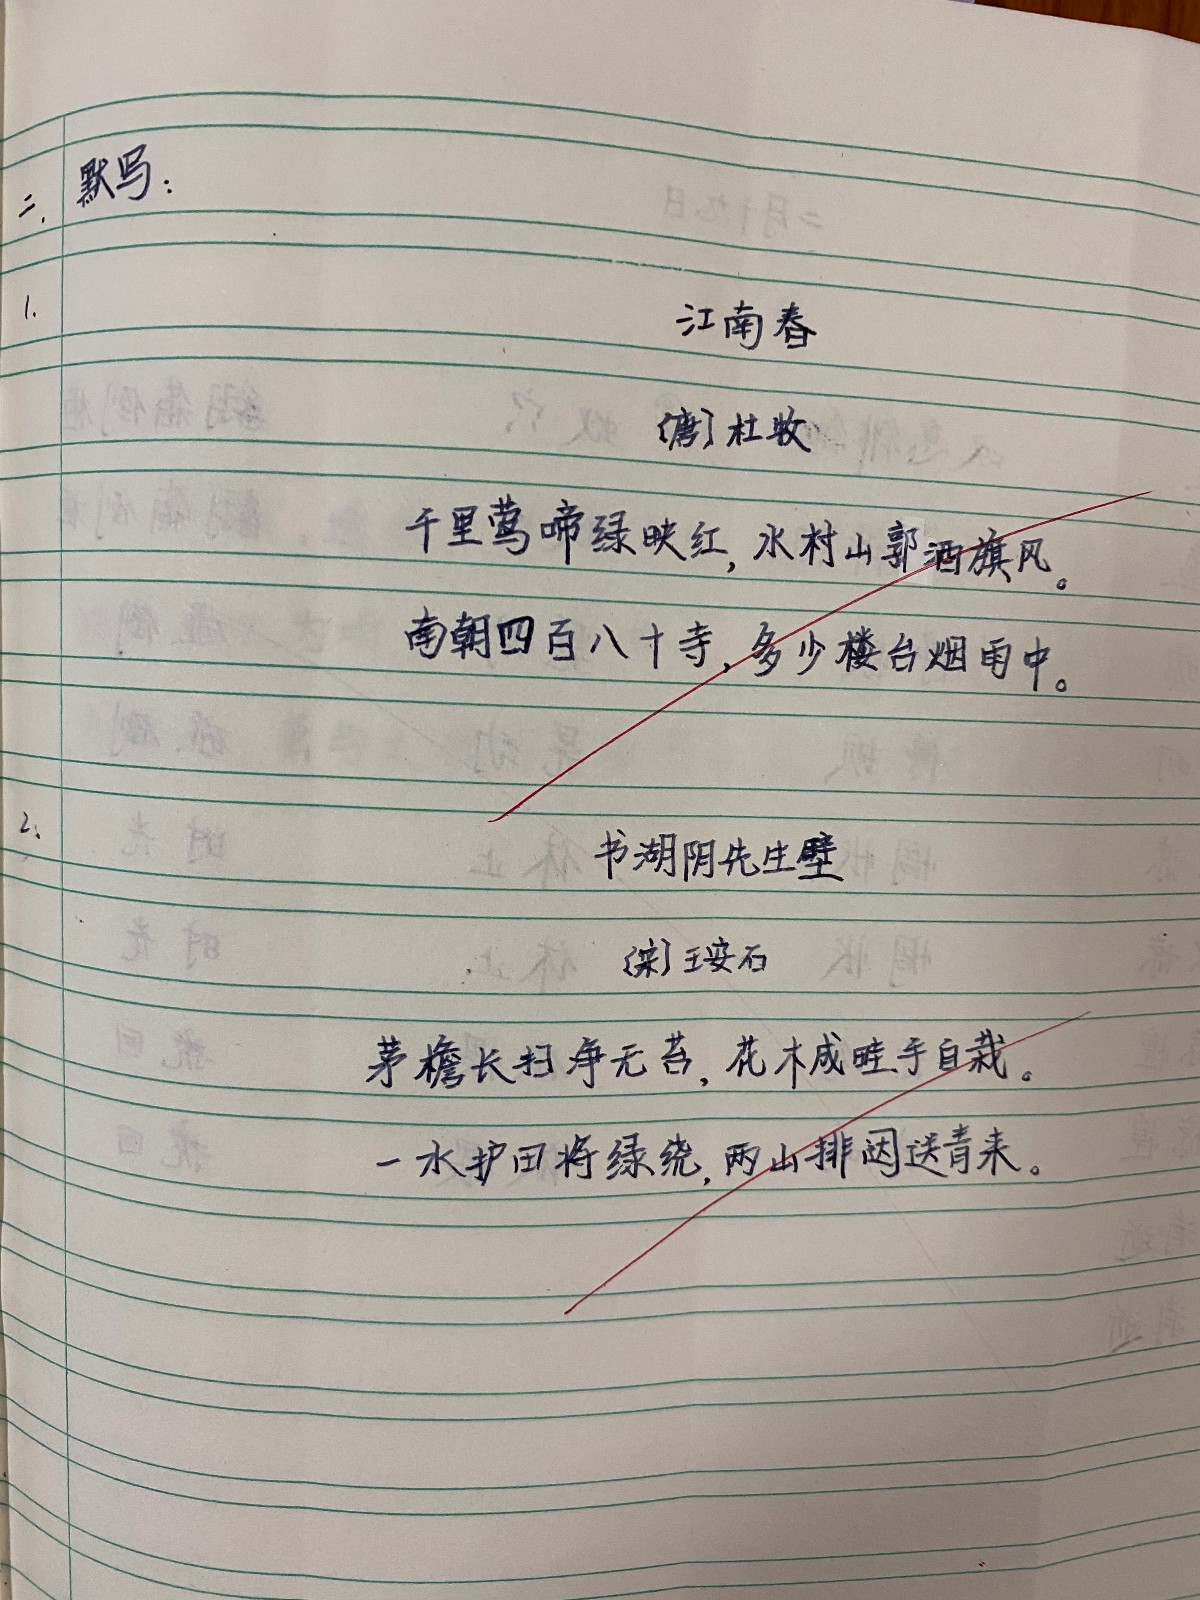 二、默写：
1.
江南春
〔唐〕杜牧
千里莺啼绿映红，水村山郭酒旗风。
南朝四百八十寺，多少楼台烟雨中。
2、
书湖阴先生壁
〔宋〕王安石
茅檐长扫净无苔，花木成畦手自栽。
一水护田将绿绕，两山排闼送青来。